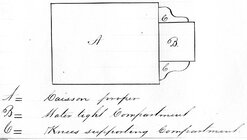 A
B
C
C
A = Caisson proper
B = Water tight Compartment
C = Knees supporting Compartment